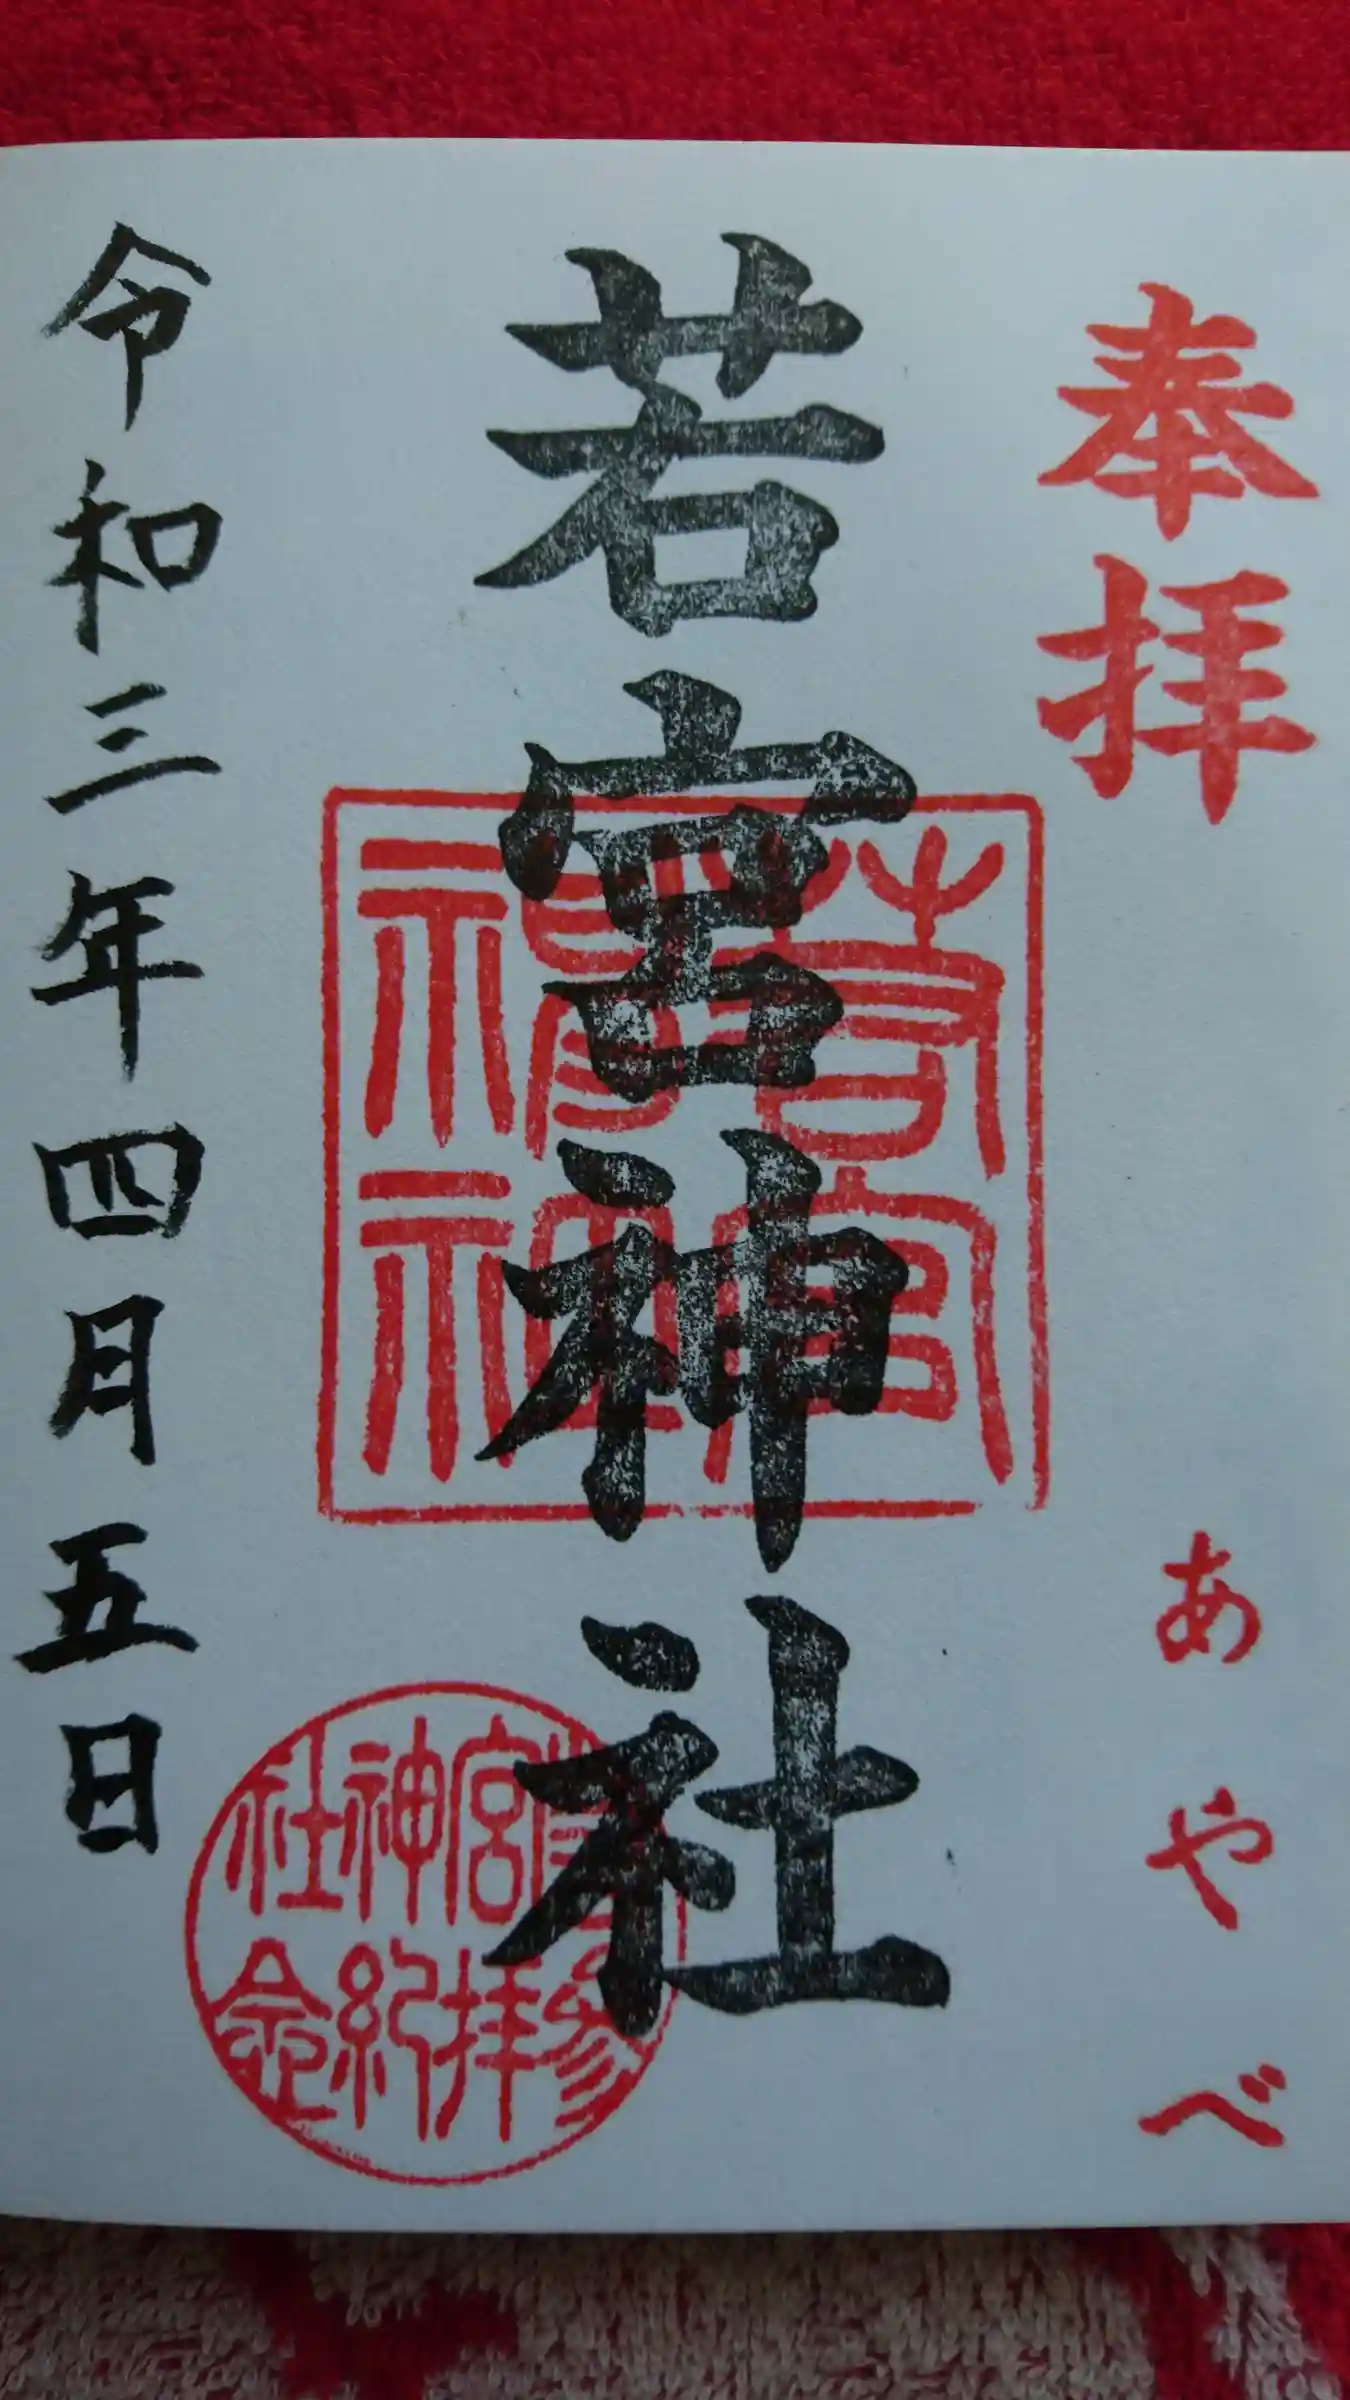 奉拝
あやべ
若宮神社
若宮
神
若宮神社
参拝紀念
令和三年四月五日